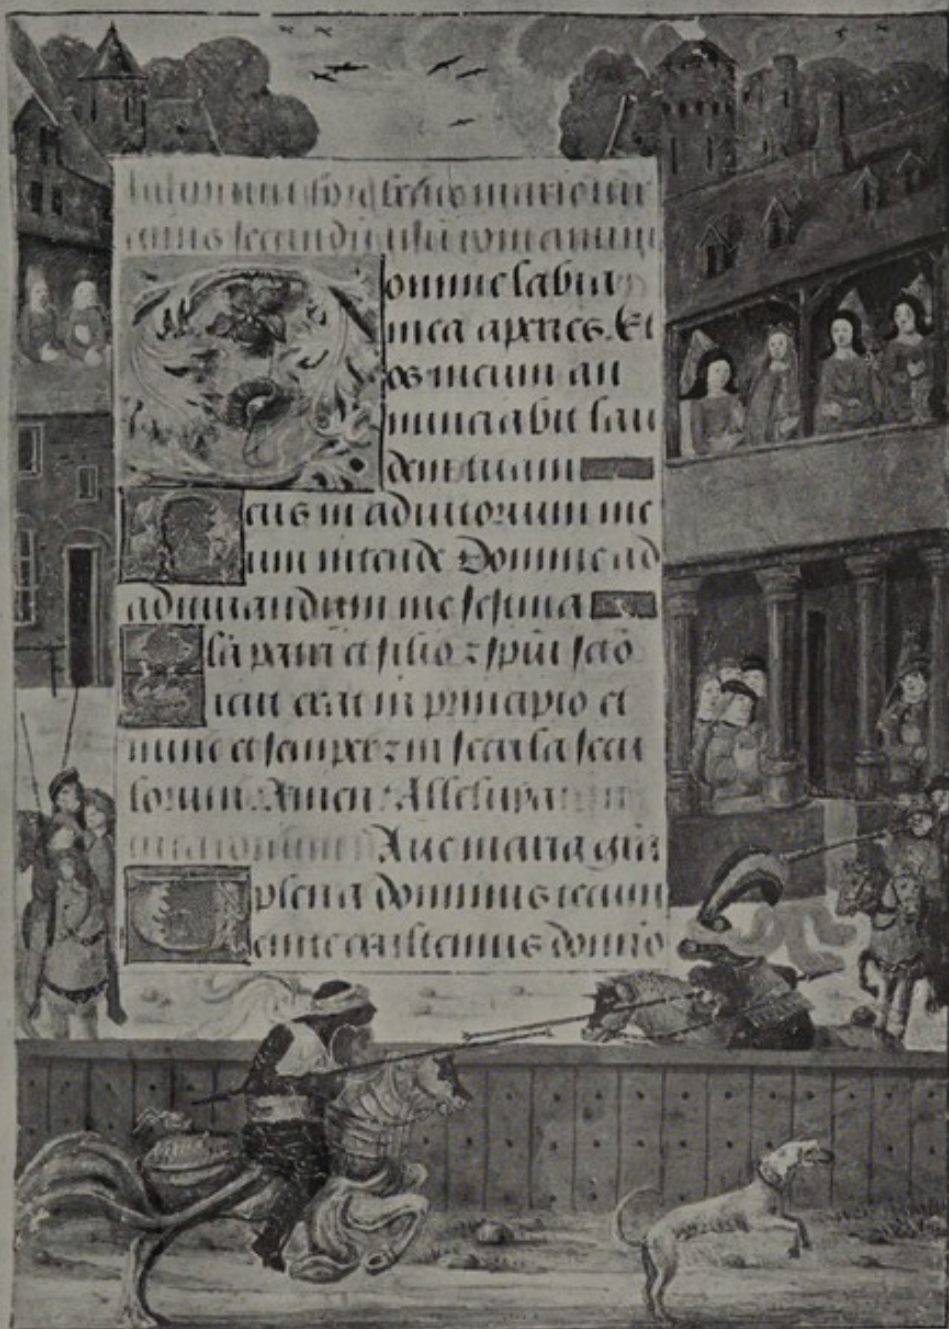 omine labia
mea aperies. Et
os meum an
nunciabit lau
dem tuam
eus in adiutorium me
um intende Domine ad
adiuuandum me festina
la patri et filio ⁊ spui scto
icut erat in principio et
nunc et semper ⁊ in secula secu
lorum. Amen. Alleluya
Aue maria gra
plena dominus tecum
enite exultemus domino